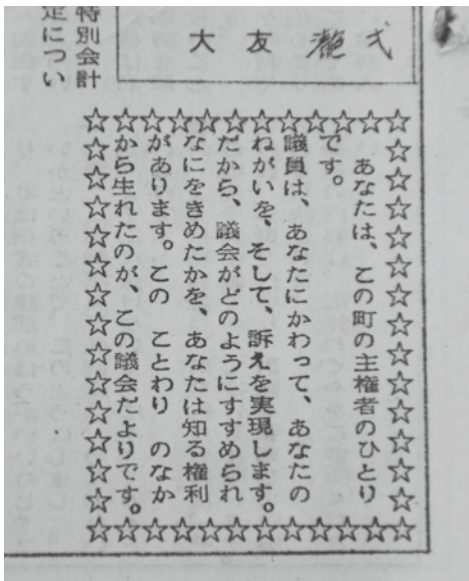 大友
特別会計
定につい
あなたは、この町の主権者のひとり
です。
議員は、あなたにかわって、あなたの
ねがいを、そして、訴えを実現します。
だから、議会がどのようにすすめられ
なにをきめたかを、あなたは知る権利
があります。この　ことわり　のなか
から生れたのが、この議会だよりです。